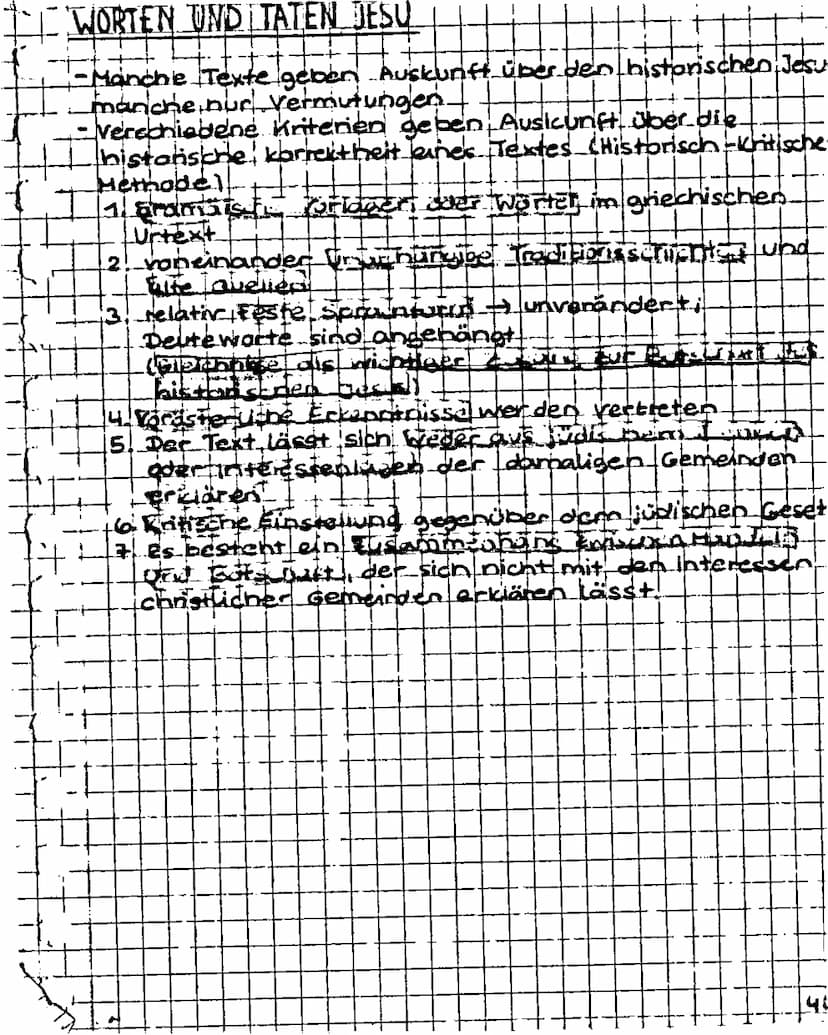 WORTEN UND TATEN JESU
- Manche Texte geben Auskunft über den historischen Jesu
manche nur Vermutungen
- Verschiedene Kriterien geben Auskunft über die
historische Korrektheit eines Textes (Historisch-Kritische
Methode)
1. oder Wörter im griechischen
Urtext
2. voneinander unabhängige Traditionsschichten und
alte Quellen
3. relativ feste → unverändert;
Deuteworte sind angehängt
(Gleichnisse als wichtiger zur
historischen Jesus)
4. Vorösterliche Erkenntnisse werden vertreten
5. Der Text lässt sich weder aus
oder Interessenlagen der damaligen Gemeinden
erklären
6. Kritische Einstellung gegenüber dem jüdischen Geset
7. Es besteht ein Zusammenhang
und Botschaft, der sich nicht mit den Interessen
christlicher Gemeinden erklären lässt.